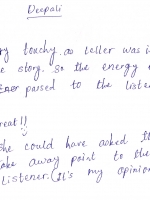 Deepali
ry touchy, as teller was i
e story. So the energy o
passed to the listen
reat!!
she could have asked th
ake away point to the
listener. (It's my opinion